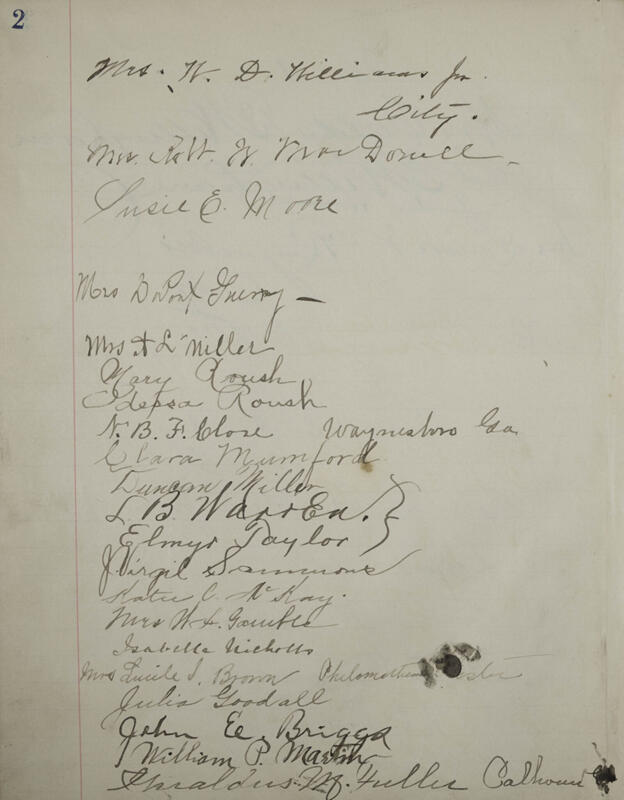 2
Mrs. W. D. Williams Jr.
City.
Mrs. Robt. W. MacDonell
Susie E. Moore
Mrs DuPont Guerry —
Mrs A L Miller
Mary Roush
Idessa Roush
N. B. F. Close Waynesboro Ga
Clara Mumford
Duncan Miller
L. B. WarrEn. }
Elmyr Taylor
J. Virgil Sammons
Katie C. McKay.
Mrs W. H. Gamble
Isabella Nicholls
Mrs Lucile J. Brown
Julia Goodall
John E. Briggs
William P. Martin
M. Fuller Calhoun